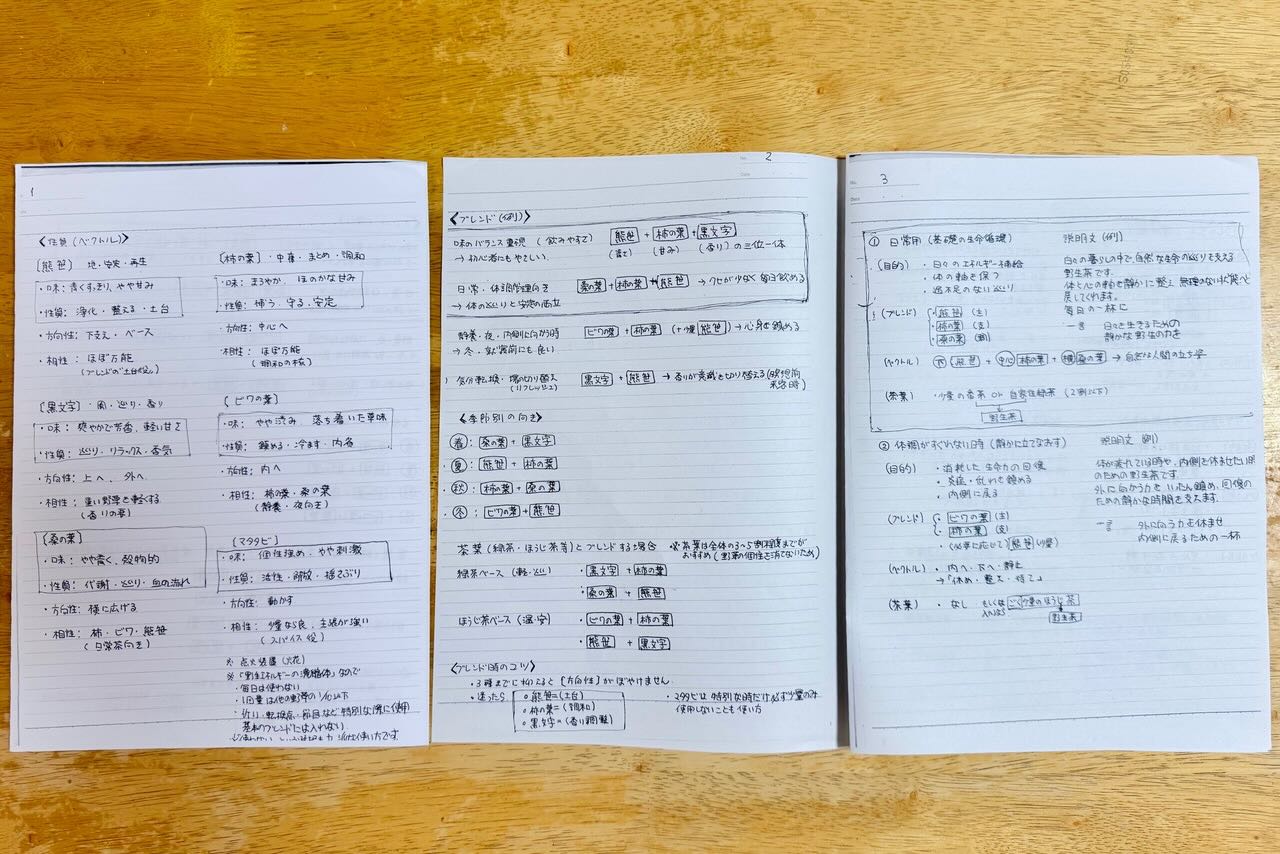 1
〈性質(ベクトル)〉
[熊笹] 地・安定・再生
・味: 青くすっきり、やや甘み
・性質: 浄化・整える・土台
・方向性: 下支え・ベース
・相性: ほぼ万能
(ブレンドの"土台役")
[柿の葉]・中庸・まとめ・調和
・味: まろやか、ほのかな甘み
・性質: 補う、守る、安定
・方向性: 中心へ
・相性: ほぼ万能
(調和の核)
[黒文字] 風・巡り・香り
・味: 爽やかで芳香、軽い甘さ
・性質: 巡り・リラックス・香気
・方向性: 上へ、外へ
・相性: 重い野草を軽くする
(香りの要)
[ビワの葉]
・味: やや渋み 落ち着いた草味
・性質: 鎮める・冷ます・内省
・方向性: 内へ
・相性: 柿の葉・桑の葉
(静養・夜向き)
[桑の葉]
・味: やや青く、穀物的
・性質: 代謝・巡り・血の流れ
・方向性: 横に広げる
・相性: 柿・ビワ・熊笹
(日常茶向き)
[マタタビ]
・味: 個性強め・やや刺激
・性質: 活性・解放・揺さぶり
・方向性: 動かす
・相性: 少量なら良、主張が強い
(スパイス役)
※ 点火装置(火花)
・毎日は使わない
・1回量は他の野草の1/10以下
・祈り・転換点・節目など特別な際に使用
基本のブレンドには入れない
2
〈ブレンド(例)〉
味のバランス重視 (飲みやすさ) 熊笹 + 柿の葉 + 黒文字
→ 初心者にもやさしい (青さ) (甘み) (香り) の三位一体
日常・体調管理向き 桑の葉 + 柿の葉 + 熊笹 → クセが少なく毎日飲める
→ 体の巡りと安定の両立
静養・夜・内側に向かう時 ビワの葉 + 柿の葉 (+少量 熊笹) → 心身を鎮める
→ 冬・就寝前にも良い
気分転換・場の切り替え 黒文字 + 熊笹 → 香りが意識を切り替える(瞑想前
(リフレッシュ) 来客時)
〈季節別の向き〉
・春: 桑の葉 + 黒文字
・夏: 熊笹 + 柿の葉
・秋: 柿の葉 + 桑の葉
・冬: ビワの葉 + 熊笹
茶葉(緑茶・ほうじ茶等)とブレンドする場合 ※茶葉は全体の3~5割程度までが
おすすめ(野草の個性を消さないため)
緑茶ベース(軽・巡り) ・黒文字 + 柿の葉
・桑の葉 + 熊笹
ほうじ茶ベース(温・安) ・ビワの葉 + 柿の葉
・熊笹 + 黒文字
〈ブレンド時のコツ〉
・3種までに抑えると[方向性]がぼやけません
・迷ったら
○熊笹=(土台)
○柿の葉=(調和)
○黒文字=(香り調整)
・マタタビは特別な時だけ必ず少量のみ
使用しないことも使い方
3
① 日常用(基礎の生命循環)
(目的) ・日々のエネルギー補給
・体の軸を保つ
・過不足のない巡り
(ブレンド) ・熊笹 (土)
・柿の葉 (支)
・桑の葉 (副)
説明文(例)
日々の暮らしの中で、自然な生命の巡りを支える
野生茶です。
体と心の軸を静かに整え 無理のない状態へ
戻してくれます。
毎日の一杯に
一言 日々を生きるための
静かな野生の力を
(ベクトル) 下(熊笹) + 中心 柿の葉 + 横 桑の葉 → 自然な人間の立ち姿
(茶葉) ・少量の番茶 or 自家性緑茶 (2割以下)
野生茶
② 体調がすぐれない日時(静かに立てなおす)
(目的) ・消耗した生命力の回復
・炎症・乱れを鎮める
・内側に戻る
(ブレンド) ・ビワの葉 (主)
・柿の葉 (支)
・(必要に応じて) 熊笹 少量
説明文 例)
体が疲れている時や、内側を休ませたい時
のための野生茶です。
外に向かう力をいったん鎮め、回復の
ための静かな時間を支えます。
一言 外に向う力を休ませ
内側に戻るための一杯
(ベクトル) ・内へ・下へ・静止
→「休め・整え・待て」
(茶葉) ・なし もしくは ごく少量のほうじ茶
野生茶